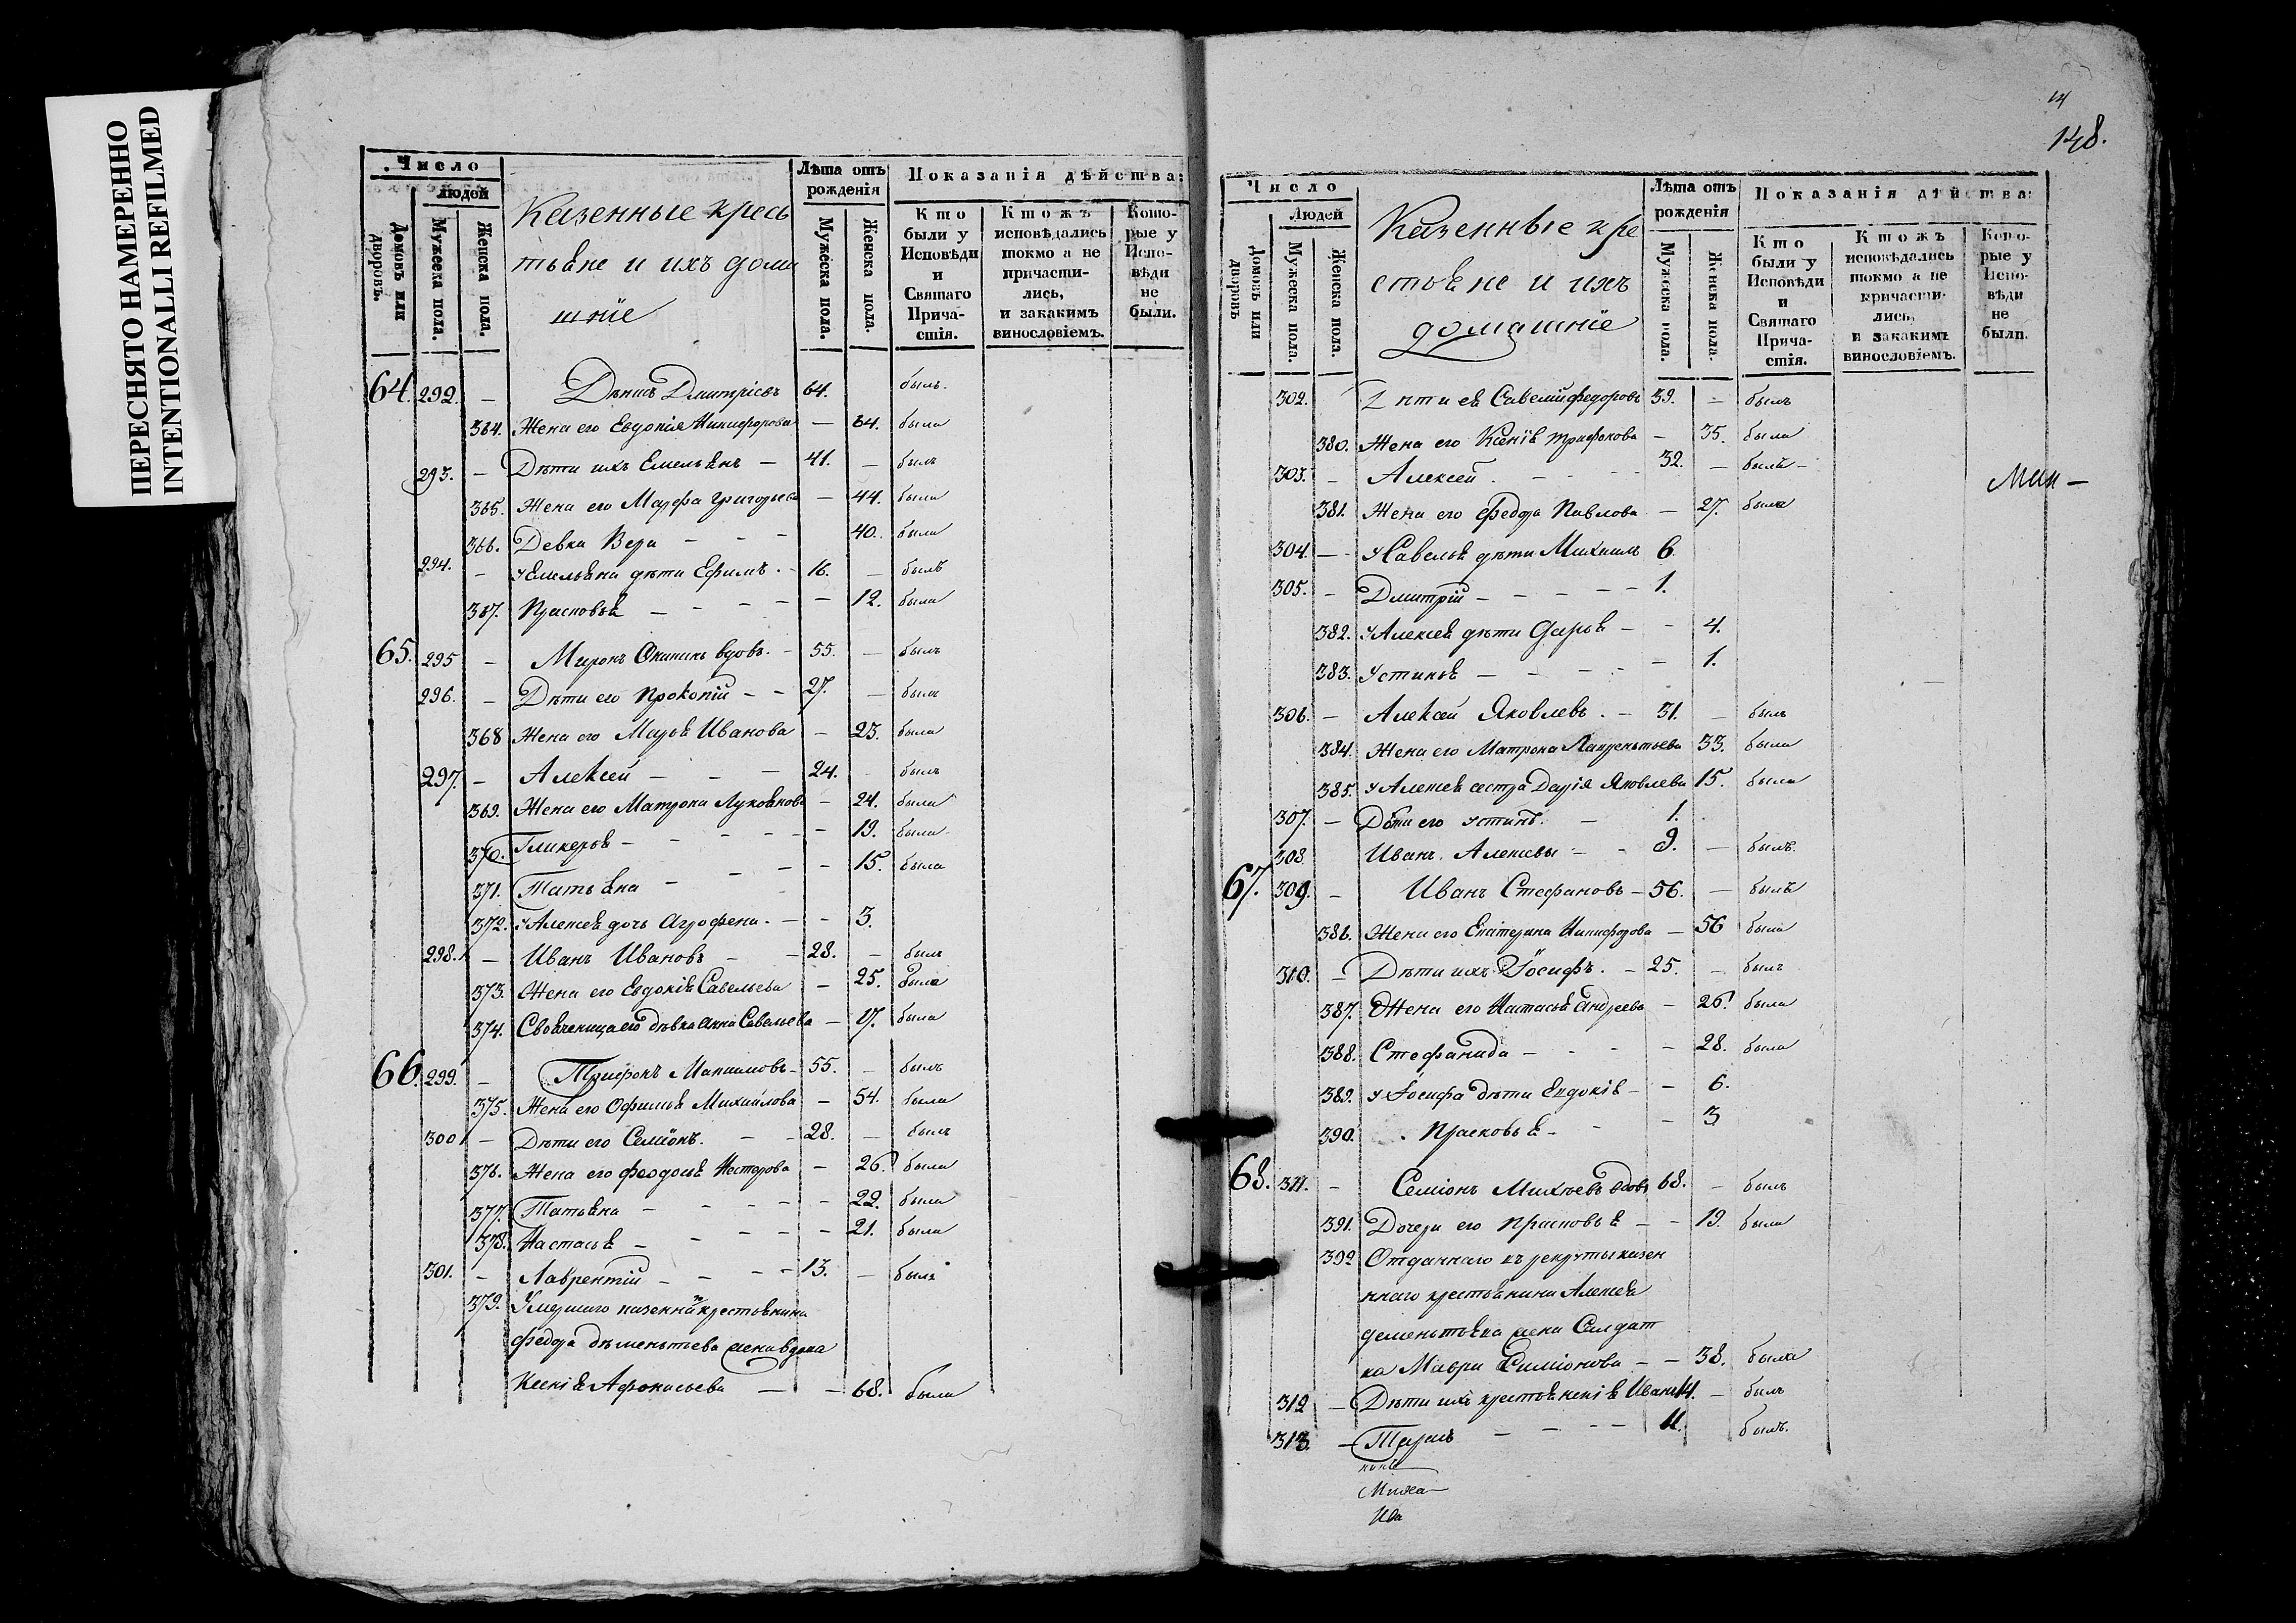 ПЕРЕСНЯТО НАМЕРЕННО
INTENTIONALLI REFILMED
Число
людей
Домовъ или дворовъ.
Мужеска пола.
Женска пола.
Казенные кресь
тьяне и ихъ дома
шніе
Лѣта отъ рожденія
Мужеска пола.
Женска пола.
Показанія дѣйства:
Кто были у Исповѣди и Святаго Причастія.
Ктожъ исповѣдались токмо а не причасти-лись, и закакимъ винословіемъ.
Кото-рые у Испо-вѣди не были.
64. 292. — Дмитріевъ 64. былъ.
364. Жена его Евдокія Никифорова — 64. была
293. — Дѣти ихъ Емельянъ — 41. — былъ
365. Жена его Марфа Григорьева — 44. была
366. Девка Вера — — — 40. была
294. — У Емельяна дѣти Ефимъ. — 16. — былъ
367. Прасковья — — — — — 12. была
65. 295 — Миронъ вдовъ. — 55. — былъ
296. — Дѣти его Прокопій — — 27. — былъ
368 Жена его Марья Иванова — 23. была
297. — Алексей — — — 24. — былъ
369. Жена его Матрона Лукоянова — 24. была
370. Гликерья — — — — — 19. была
371. Татьяна — — — — 15. была
372. У Алексея дочь Агрофена. — — 3.
298. — Иванъ Ивановъ — — 28. — былъ
373. Жена его Евдокія Савельева — 25. была
374. Своячница его дѣвка Анна Савельева — 17. была
66. 299. — Трифонъ Максимовъ — 55. — былъ
375. Жена его Офимья Михайлова — 54. была
300 — Дѣти его Семіонъ. — — 28. — былъ
376. Жена его Феодосья Нестерова — 26. была
377. Татьяна — — — — — 22. была
378. Настасья — — — — — 21. была
301. — Лаврентій — — — — 13. — былъ
379. Умершаго казенна крестьянина
Федора Дѣментьева жена вдова
Ксенія Афонасьева — — — 68. была
14
148.
Число
Людей
Домовъ или дворовъ
Мужеска пола.
Женска пола.
Казенные кре
стьяне и ихъ
домашніе
Лѣта отъ рожденія
Мужеска пола.
Женска пола.
Показанія дѣйства:
Кто были у Исповѣди и Святаго Прича-стія.
Ктожъ исповѣдались токмо а не причасти-лись, и закакимъ винословіемъ.
Кото-рые у Испо-вѣди не были.
302. Дѣти ея Савелий Федоровъ 39. — былъ
380. Жена его Ксенія Трифонова — 35. была
303. — Алексей. — — 32. — былъ —
381. Жена его Федора Павлова — 27. была
304. — У Савелья дѣти Михаилъ 6.
305. — Дмитрій — — — — — 1.
382. У Алексея дѣти Дарья — — 4.
383. Устинья — — — — 1.
306. — Алексей Яковлевъ. — 31. — былъ
384. Жена его Матрона Лаврентьева 33. была
385. У Алексея сестра Дарія Яковлева 15. была
307. — Дѣти его Устинъ. — 1.
308. Иванъ Алексевы — — 9. — былъ.
67. 309. — Иванъ Стефановъ — 56. — былъ
386. Жена его Екатерина Никифорова — 56 была
310. — Дѣти ихъ Іосифъ. — 25. — былъ
387. Жена его Настасья Андреева — 26. была
388. Стефанида — — — — 28. была
389. У Іосифа дѣти Евдокія — — 6.
390. Прасковья — — — 3
68. 311. — Семіонъ Михѣевъ вдовъ 68. — былъ
391. Дочери его Прасковья — — 19. была
392 Отданнаго въ рекруты казен
ннаго крестьянина Алексея
Дементьева жена Салдат
ка Мавра Симіонова — — 38. была
312 — Дѣти ихъ Иванъ 14. — былъ
313. — Тарасъ — — — — 11. былъ.